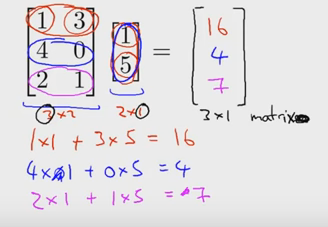 [1 3; 4 0; 2 1] [1; 5] = [16; 4; 7]
3x2 2x1 3x1 matrix
1x1 + 3x5 = 16
4x1 + 0x5 = 4
2x1 + 1x5 = 7